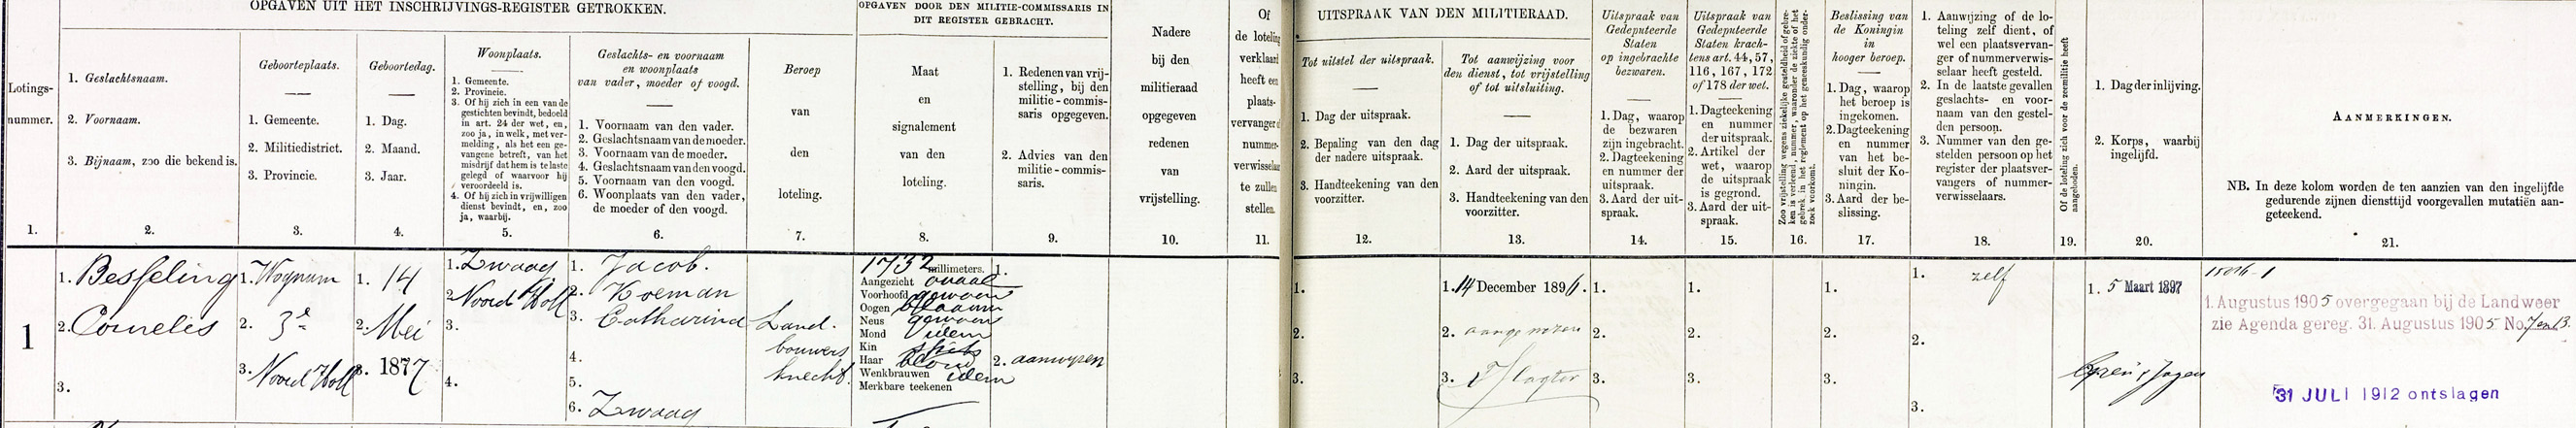 OPGAVEN UIT HET INSCHRIJVINGS-REGISTER GETROKKEN.
OPGAVEN DOOR DEN MILITIE-COMMISSARIS IN
DIT REGISTER GEBRACHT.
Lotings-
nummer.
1.
1. Geslachtsnaam.
2. Voornaam.
3. Bijnaam, zoo die bekend is.
2.
Geboorteplaats.
1. Gemeente.
2. Militiedistrict.
3. Provincie.
3.
Geboortedag.
1. Dag.
2. Maand.
3. Jaar.
4.
Woonplaats.
1. Gemeente.
2. Provincie.
3. Of hij zich in een van de
gestichten bevindt, bedoeld
in art. 24 der wet, en,
zoo ja, in welk, met ver-
melding, als het een ge-
vangene betreft, van het
misdrijf dat hem is te laste
gelegd of waarvoor hij
veroordeeld is.
4. Of hij zich in vrijwilligen
dienst bevindt, en, zoo
ja, waarbij.
5.
Geslachts- en voornaam
en woonplaats
van vader, moeder of voogd.
1. Voornaam van den vader.
2. Geslachtsnaam van de moeder.
3. Voornaam van de moeder.
4. Geslachtsnaam van den voogd.
5. Voornaam van den voogd.
6. Woonplaats van den vader,
de moeder of den voogd.
6.
Beroep
van
den
loteling.
7.
Maat
en
signalement
van den
loteling.
8.
1. Redenen van vrij-
stelling, bij den
militie-commis-
saris opgegeven.
2. Advies van den
militie-commis-
saris.
9.
Nadere
bij den
militieraad
opgegeven
redenen
van
vrijstelling.
10.
Of
de loteling
verklaard
heeft een
plaats-
vervanger of
nummer-
verwisselaar
te zullen
stellen.
11.
UITSPRAAK VAN DEN MILITIERAAD.
Tot uitstel der uitspraak.
1. Dag der uitspraak.
2. Bepaling van den dag
der nadere uitspraak.
3. Handteekening van den
voorzitter.
12.
Tot aanwijzing voor
den dienst, tot vrijstelling
of tot uitsluiting.
1. Dag der uitspraak.
2. Aard der uitspraak.
3. Handteekening van den
voorzitter.
13.
Uitspraak van
Gedeputeerde
Staten
op ingebrachte
bezwaren.
1. Dag, waarop
de bezwaren
zijn ingebracht.
2. Dagteekening
en nummer der
uitspraak.
3. Aard der uit-
spraak.
14.
Uitspraak van
Gedeputeerde
Staten krach-
tens art. 44, 57,
116, 167, 172
of 178 der wet.
1. Dagteekening
en nummer
der uitspraak.
2. Artikel der
wet, waarop
de uitspraak
is gegrond.
3. Aard der uit-
spraak.
15.
Zoo vrijstelling wegens ziekelijke gesteldheid of gebre-
ken is verleend, nummer, waaronder de ziekte of het
gebrek in het reglement op het geneeskundig onder-
zoek voorkomt.
16.
Beslissing van
de Koningin
in
hooger beroep.
1. Dag, waarop
het beroep is
ingekomen.
2. Dagteekening
en nummer
van het be-
sluit der Ko-
ningin.
3. Aard der be-
slissing.
17.
1. Aanwijzing of de lo-
teling zelf dient, of
wel een plaatsvervan-
ger of nummerverwis-
selaar heeft gesteld.
2. In de laatste gevallen
geslachts- en voor-
naam van den gestel-
den persoon.
3. Nummer van den ge-
stelden persoon op het
register der plaatsver-
vangers of nummer-
verwisselaars.
18.
Of de loteling zich voor de zeemilitie heeft
aangeboden.
19.
1. Dag der inlijving.
2. Korps, waarbij
ingelijfd.
20.
AANMERKINGEN.
NB. In deze kolom worden de ten aanzien van den ingelijfde
gedurende zijnen diensttijd voorgevallen mutatiën aan-
geteekend.
21.
1
1. Besseling
2. Cornelis
3.
1. Wognum
2. 3e
3. Noord Holl
1. 14
2. Mei
3. 1877
1. Zwaag
2. Noord Holl
3.
4.
1. Jacob.
2. Koeman
3. Catharina
4.
5.
6. Zwaag
Land-
bouwers
knecht.
1732 millimeters.
Aangezicht ovaal
Voorhoofd gewoon
Oogen blaauw
Neus gewoon
Mond idem
Kin spits
Haar blond
Wenkbrauwen idem
Merkbare teekenen
1.
2. aanwijzen
1.
2.
3.
1. 14 December 1896.
2. aangewezen
3. Slagter
1.
2.
3.
1.
2.
3.
1.
2.
3.
1. zelf
2.
3.
1. 5 Maart 1897
Gren. & Jagers
1. Augustus 1905 overgegaan bij de Landweer
zie Agenda gereg. 31. Augustus 1905 No. 7 en 13.
31 JULI 1912 ontslagen